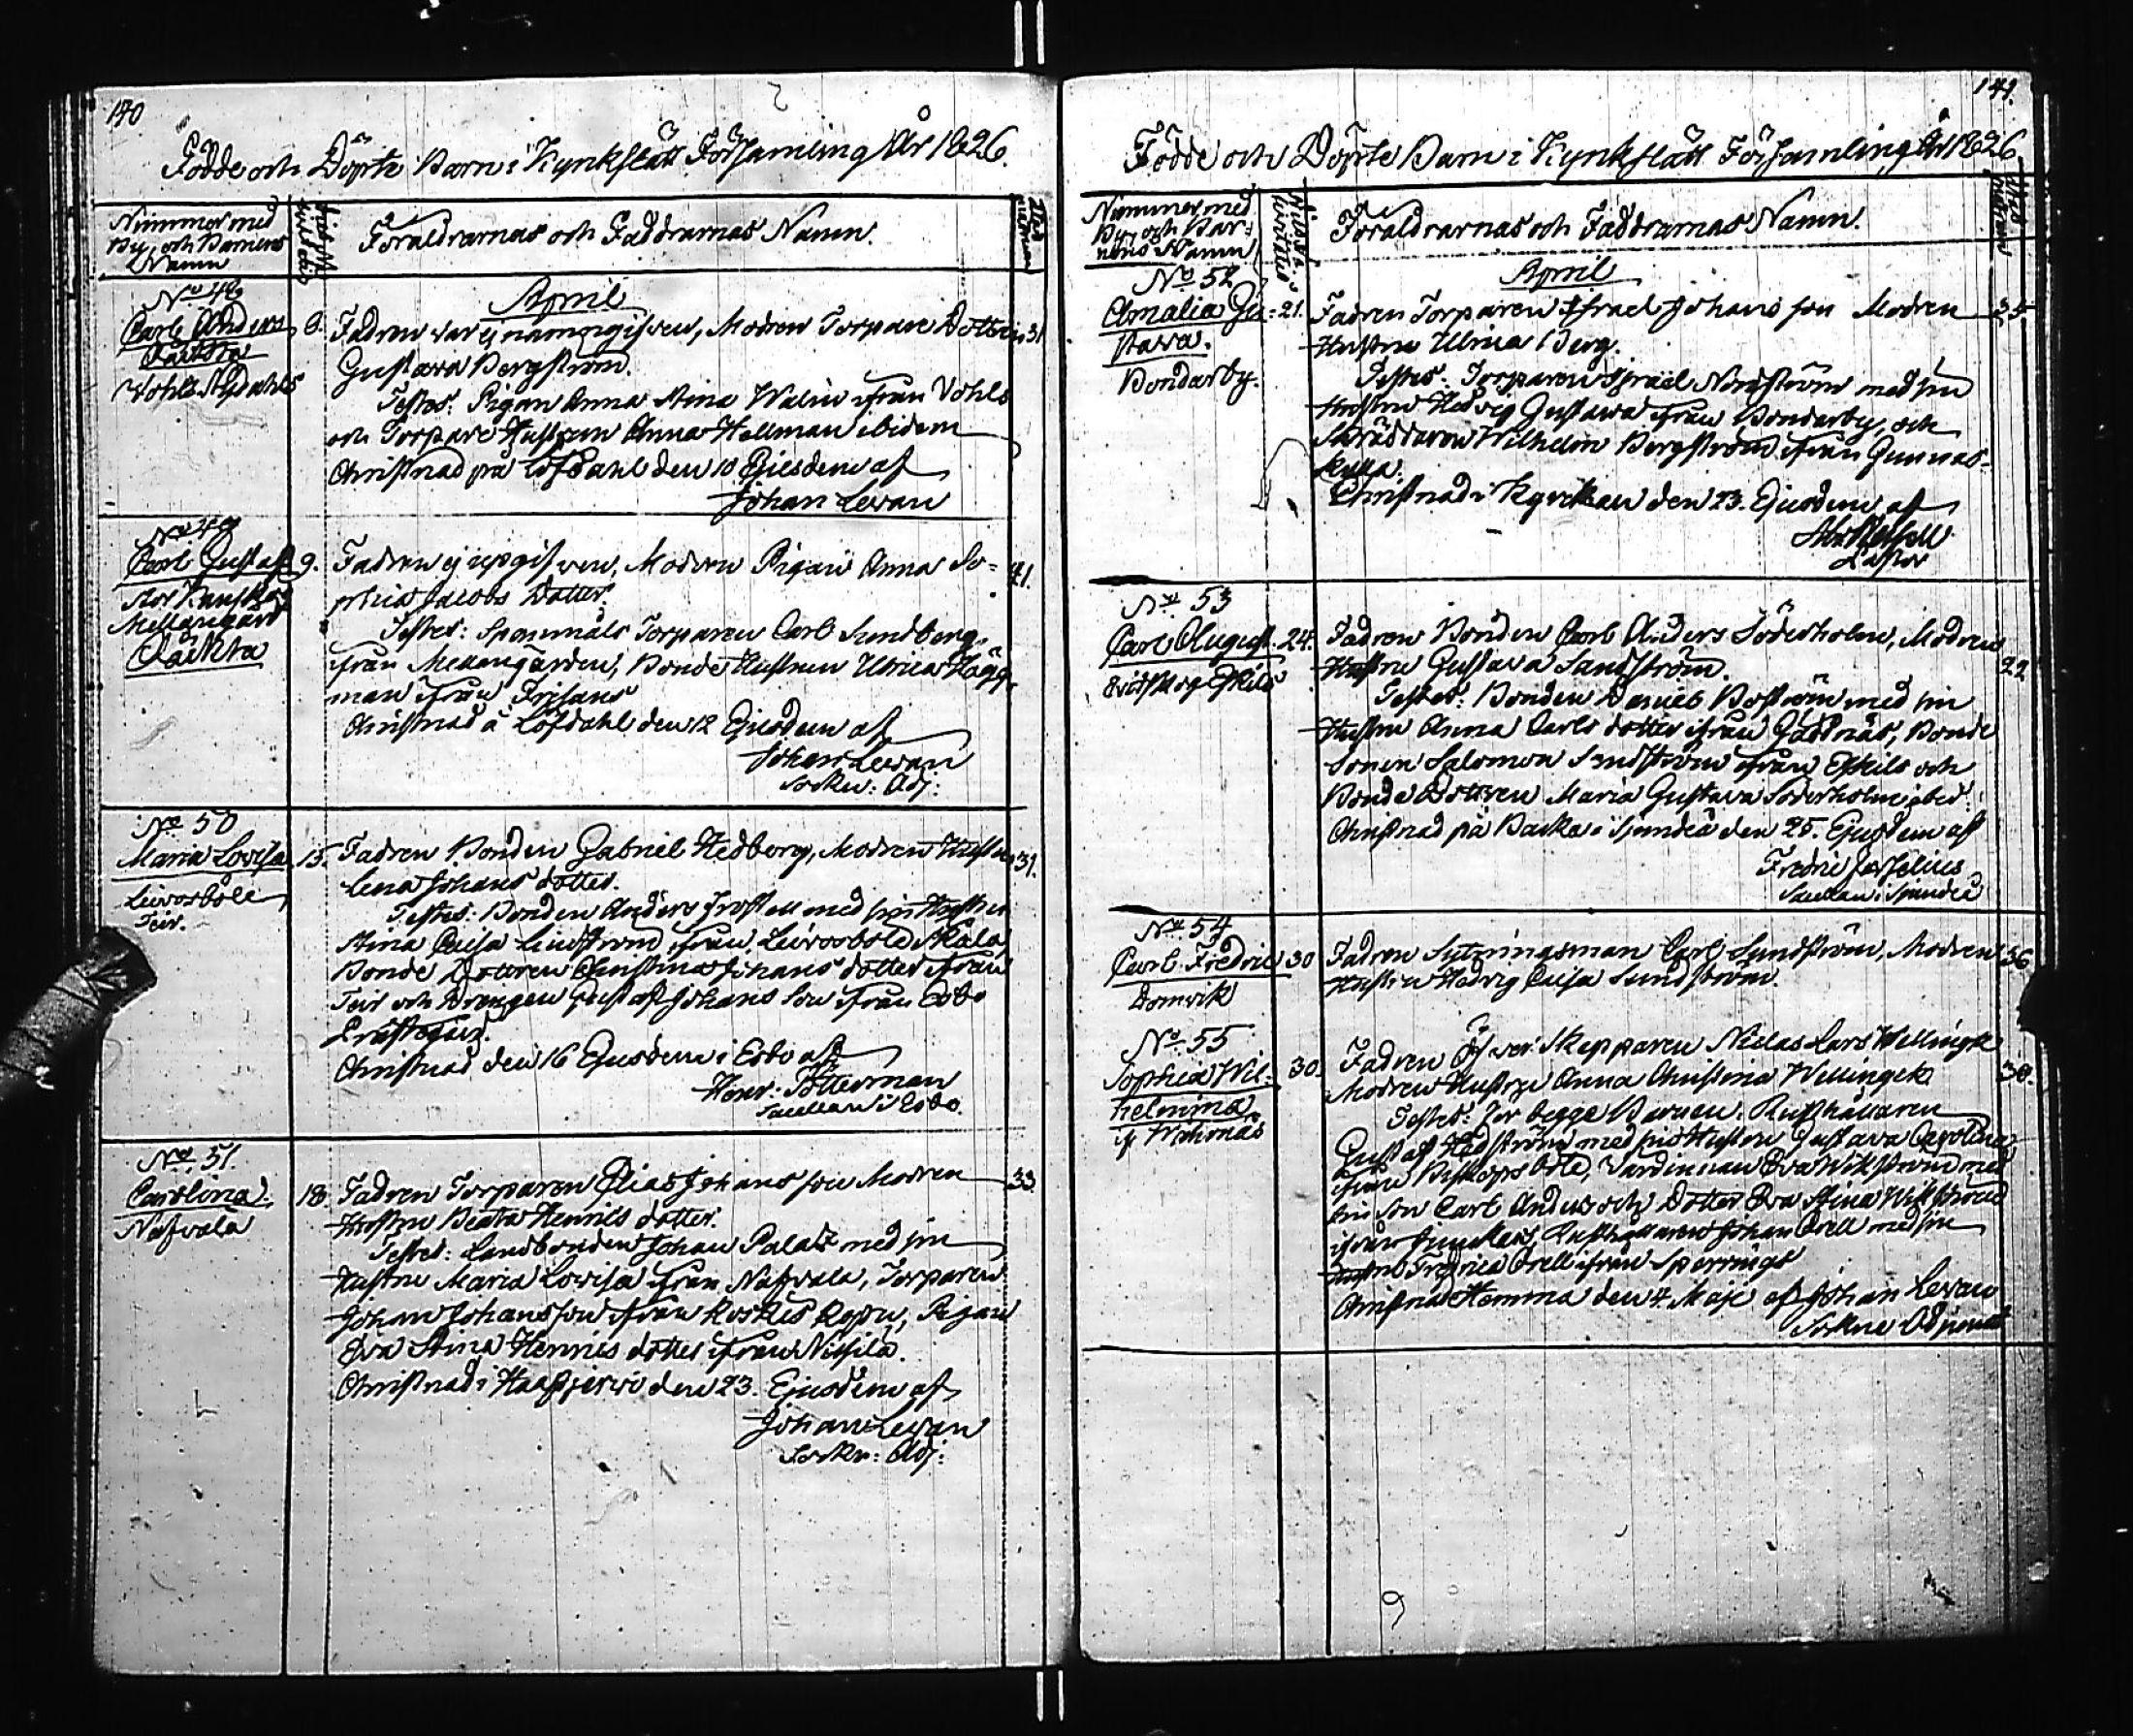 140
Födde och Döpte Barn i Kyrkslätt Församling År 1826.
Nummer med
By, och Barnens
Namn
Föräldrarnas och Faddrarnas Namn.
April
No 48
Carl Anders
Oäkta
Wohls
8. Fadren war ej namngifwen, Modren Torpare Dottren 31
Gustava Bergström.
Testes: Pigan Anna Stina Walin ifrån Wohls
och Torpare Hustrun Anna Hellman ibidem
Christnad på Löfdahl den 10 Ejusdem af
Johan Levan
No 49
Carl Gustaf 9. Fadren ej upgifwen, Modren Pigan Anna So= 41.
Mellangård
Oäkta
phia Jacobs Dotter.
Testes: Torparen Carl Sundberg
ifrån Mellangården, Bonde Hustrun Ulrica Hägg-
man ifrån Frisans
Christnad å Löfdahl den 12 Ejusdem af
Johan Levan
Sockn: Adj:
No 50
Maria Lovisa 15. Fadren Bonden Gabriel Hedberg, Modren Hustru 31.
Lena Johans dotter.
Teir.
Testes: Bonden Anders med sin Hustru
Stina Caisa Lindström ifrån
Bonde Dottren Christina Johans dotter ifrån
Teir och Drengen Gustaf Johans Son ifrån Esbo
Christnad den 16 Ejusdem i Esbo af
Henr: Totterman
i Esbo.
No. 51.
Carolina. 18. Fadren Torparen Elias Johans son Modren 33.
Nafvala
Hustru Beata Henrics dotter.
Testes: Landbonden Johan Palatz med sin
Hustru Maria Lovisa ifrån Nafvala, Torparen
Johan Johansson ifrån Pigan
Eva Stina Henrics dotter ifrån
Christnad i den 23. Ejusdem af
Johan Levan
Sockn: Adj:
141.
Födde och Döpte Barn i Kyrkslätt Församling År 1826
Nummer, med
By, och Bar=
nens Namn
Föräldrarnas och Faddrarnas Namn.
No 52
April
Amalia Gu= 21. Fadren Torparen Israel Johans son Modren 25.
stava.
Hustru Ulrica Berg.
Bondarby.
Testes: Torparen Israel Nordström med sin
Hustru Hedvig Gustava ifrån Bondarby, och
Skräddaren Wilhelm Bergström ifrån Gunnas-
kulla.
Christnad i Kyrckan den 23. Ejusdem af
Pastor
No 53
Carl August. 24. Fadren Bonden Carl Anders Söderholm, Modren
Hustru Gustava Sandström. 22
Testes: Bonden Daniel Boström med sin
Hustru Anna Carls dotter ifrån Gäddnäs, Bonde
Sonen Salomon Sundström ifrån Eskils och
Bonde Dottren Maria Gustava Söderholm ibid:
Christnad på Backa i Sjundeå den 25. Ejusdem af
Fredric Forselius
i Sjundeå
No. 54
Carl Fredric 30 Fadren Sytningsman Carl Sundström, Modren 36
Domwik
Hustru Hedvig Caisa Sundström.
No. 55
Sophia Wil= 30. Fadren Skepparen Niclas Lars Wellingk
helmina
Modren Hustru Anna Christina Wellingk 38.
Testes: för begge Barnen. Rusthållaren
Gustaf Hedström med sin Hustru Gustava Carolina
ifrån Värdinnan Eva Wikström med
sin son Carl Anders och Dotter Eva Stina Wikström
ifrån Rusthållaren Johan Orell med sin
Hustru Fredrica Orell ifrån Sperrings
Christnad Hemma den 4. Maji af Johan Levan
Sockne Adjunct